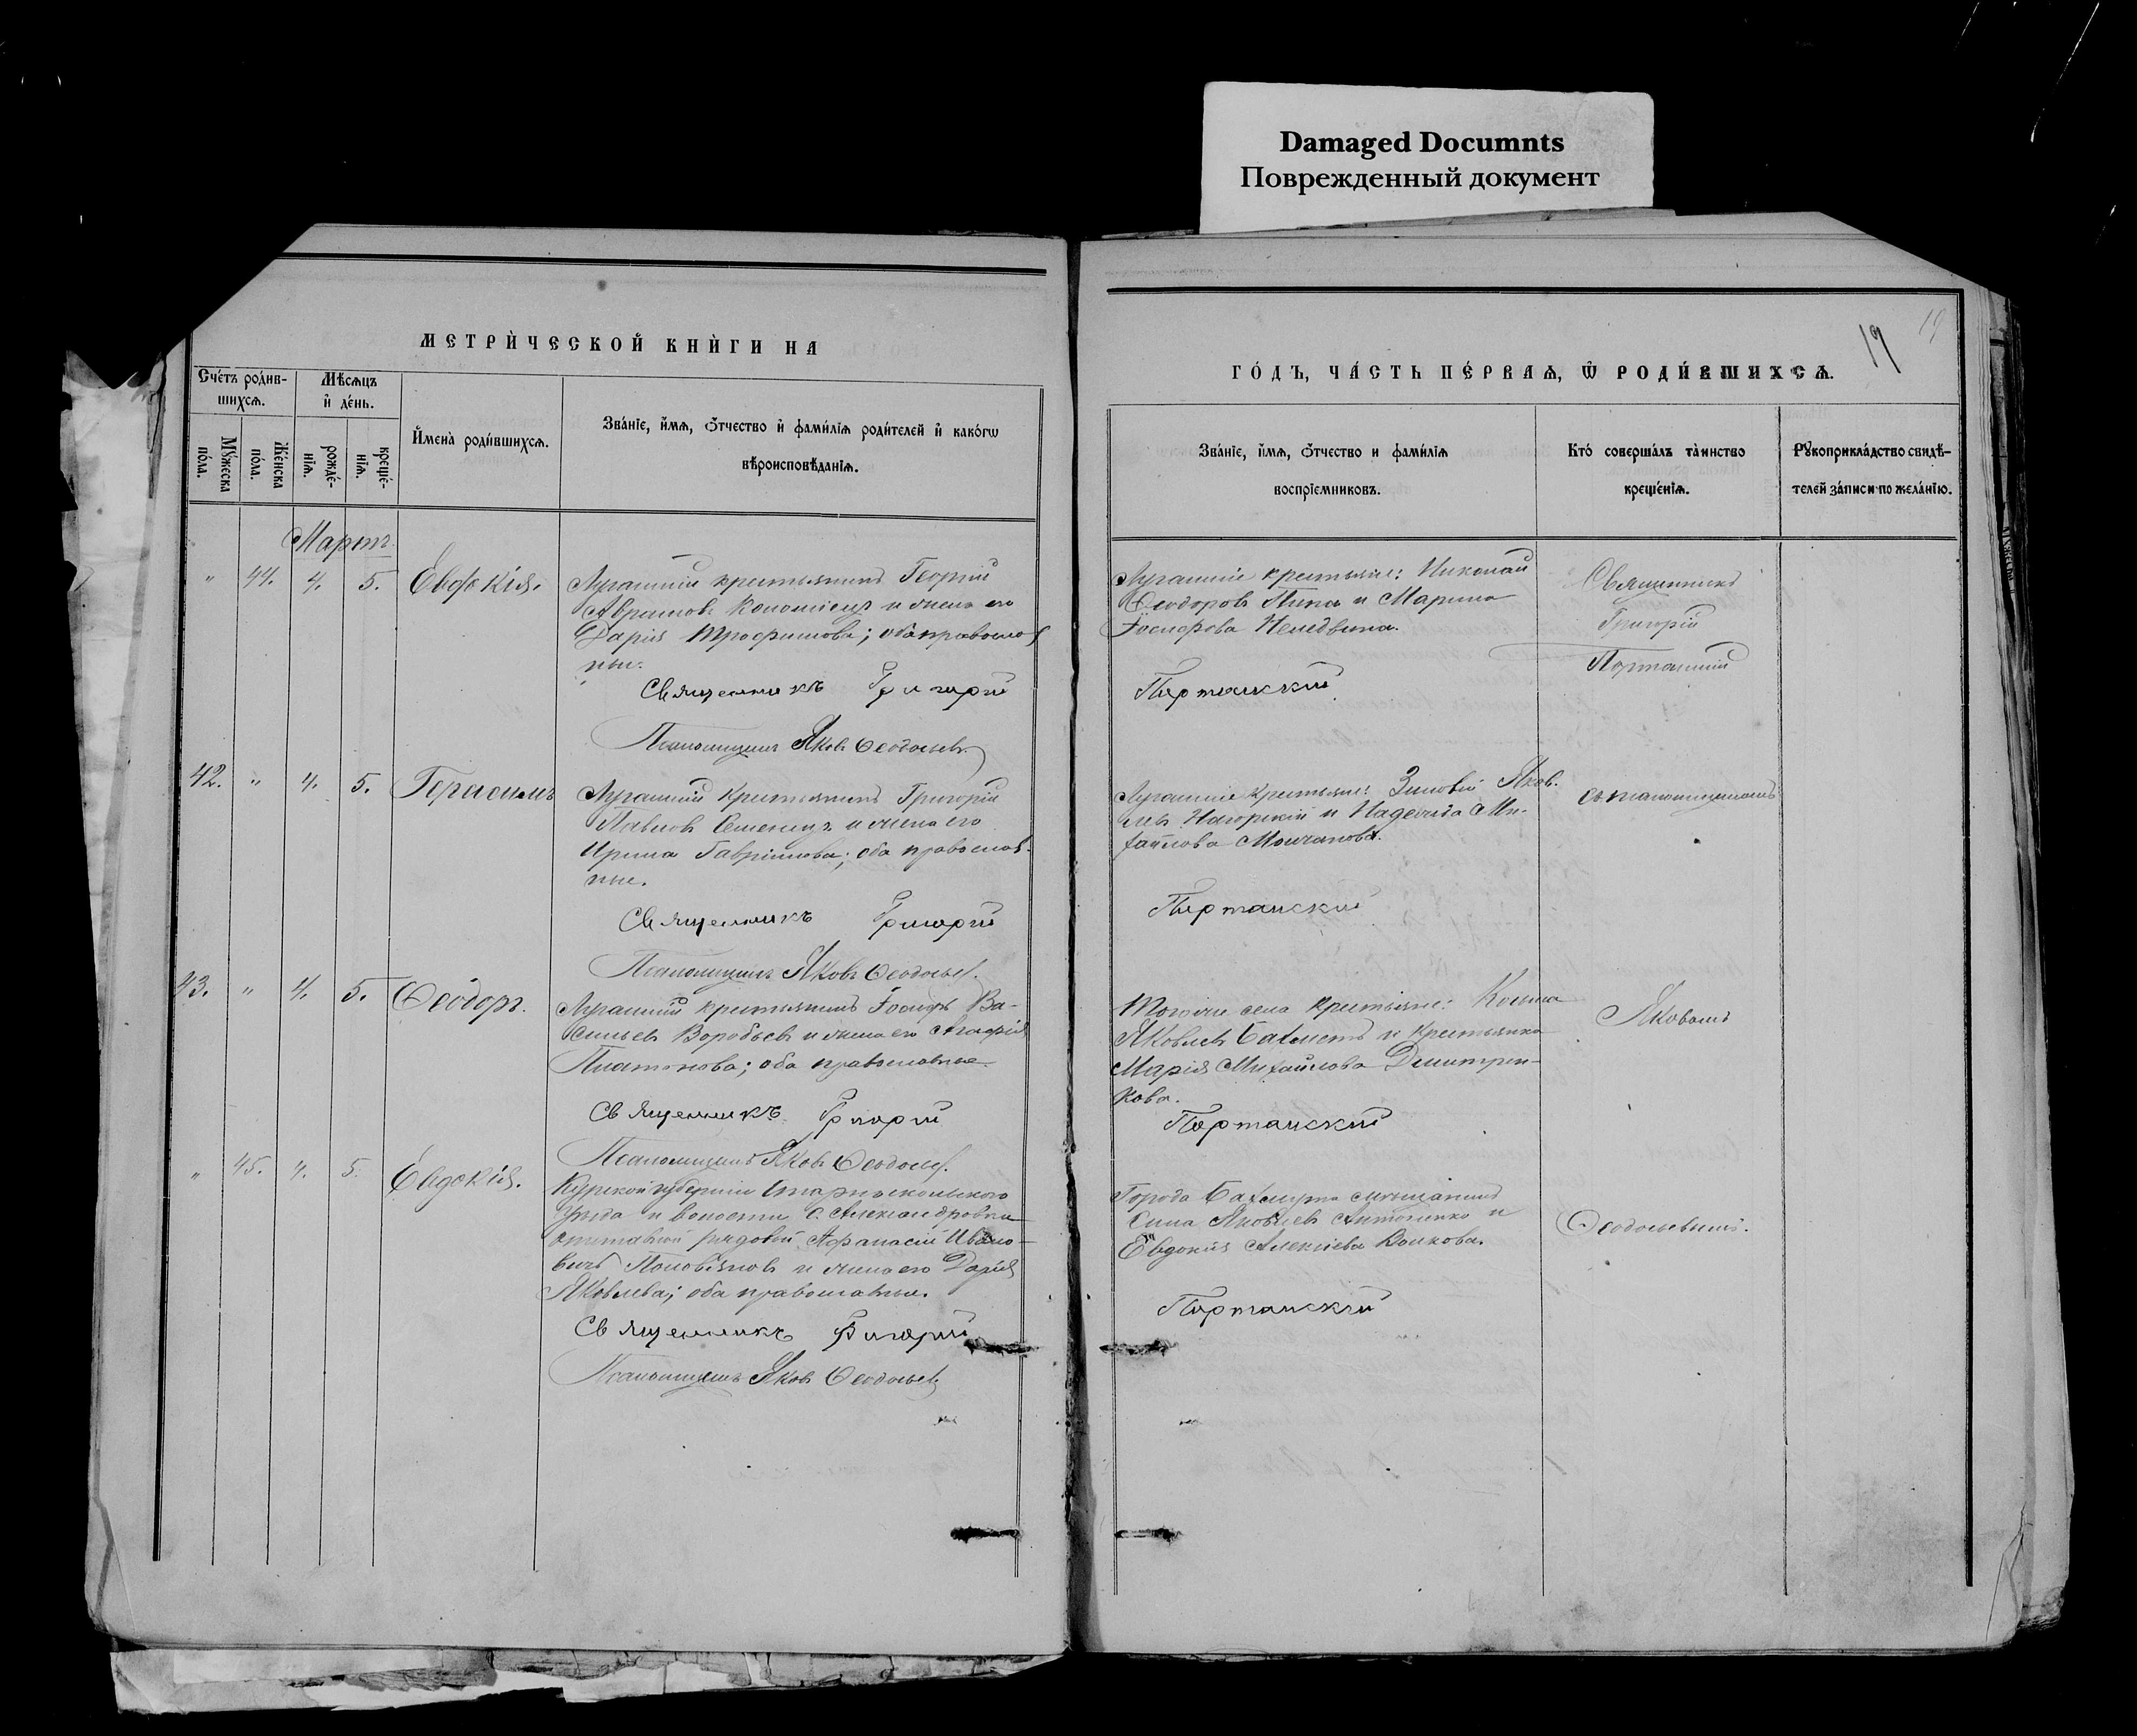 Damaged Documnts
Поврежденный документ
МЕТРИ́ЧЕСКОЙ КНИ́ГИ НА
Сче́тъ роди́в-
шихсѧ.
Мѣсѧцъ
и҆ де́нь.
Мꙋ́жеска
по́ла.
Же́нска
по́ла.
рожде́-
нїѧ.
креще́-
нїѧ.
И҆мена̀ роди́вшихсѧ.
Зва́нїе, и҆́мѧ, ѻ҆́тчество и҆ фами́лїѧ роди́телей и҆ како́гѡ
вѣроисповѣ́данїѧ.
Мартъ.
" 44. 4. 5. Евдокія.
Луганскій крестьянинъ Георгій
Аврамовъ и жена его
Дарія Трофимова; оба православ
ные.
Священникъ Григорій
Псаломщикъ Яковъ Ѳеодосьевъ
42. " 4. 5. Герасимъ
Луганскій крестьянинъ Григорій
Павловъ и жена его
Ирина Гавріилова; оба православ-
ные.
Священникъ Григорій
Псаломщикъ Яковъ Ѳеодосьев.
43. " 4. 5. Ѳеодоръ.
Луганскій крестьянинъ Іосифъ Ва-
сильевъ Воробьевъ и жена его Агафія
Платонова; оба православные.
Священникъ Григорій
Псаломщикъ Яковъ Ѳеодосьев.
" 45. 4. 5. Евдокія.
Курской губерніи Старооскольского
уѣзда и волости с. Александровки
рядовой Афанасій Ивано-
вичъ и жена его Дарія
Яковлева; оба православные.
Священникъ Григорій
Псаломщикъ Яковъ Ѳеодосьевъ
ГО́ДЪ, ЧА́СТЬ ПЕ́РВАѦ, Ѡ҆ РОДИ́ВШИХСѦ.
19
19
Зва́нїе, и҆́мѧ, ѻ҆́тчество и фами́лїѧ
воспрїе́мниковъ.
Кто̀ соверша́лъ та́инство
креще́нїѧ.
Рꙋкоприкла́дство свидѣ́-
телей за́писи по жела́нїю.
Луганскіе крестьяне: Николай
Ѳеодоровъ и Марина
Іосифова
Портанскій
Священникъ
Григорій
Портанскій
Луганскіе крестьяне: Зиновій Яков-
левъ Нагорскій и Надежда Ми-
хайлова Молчанова.
Портанскій
съ псаломщикомъ
Того же села крестьяне: Косма
Яковлевъ Бахметъ и крестьянка
Марія Михайлова Дмитрен-
кова.
Портанскій
Яковомъ
Города Бахмута мѣщанинъ
Сила Яковлевъ Антоненко и
Евдокія Алексіева Волкова.
Портанскій
Ѳеодосьевымъ.